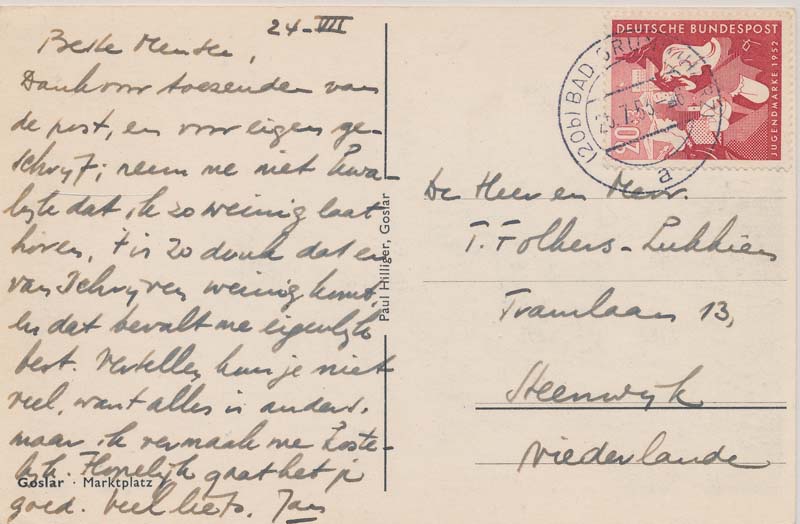 24-VII
Beste Mensen,
Dank voor toezenden van
de post, en voor eigen ge-
schrijf; neem me niet kwa-
lijk dat ik zo weinig laat
horen, 't is zo druk dat er
van schrijven weinig komt,
en dat bevalt me eigenlijk
best. Vertellen kun je niet
veel, want alles is anders,
maar ik vermaak me koste-
lijk. Hopelijk gaat het je
goed. Veel liefs. Jan
Goslar · Marktplatz
Paul Hilliger, Goslar
DEUTSCHE BUNDESPOST
JUGENDMARKE 1952
20
(20b) BAD
25.7.53
a
De Heer en Mevr.
T. Folkers-Lukkien
Tramlaan 13,
Steenwijk
Niederlande